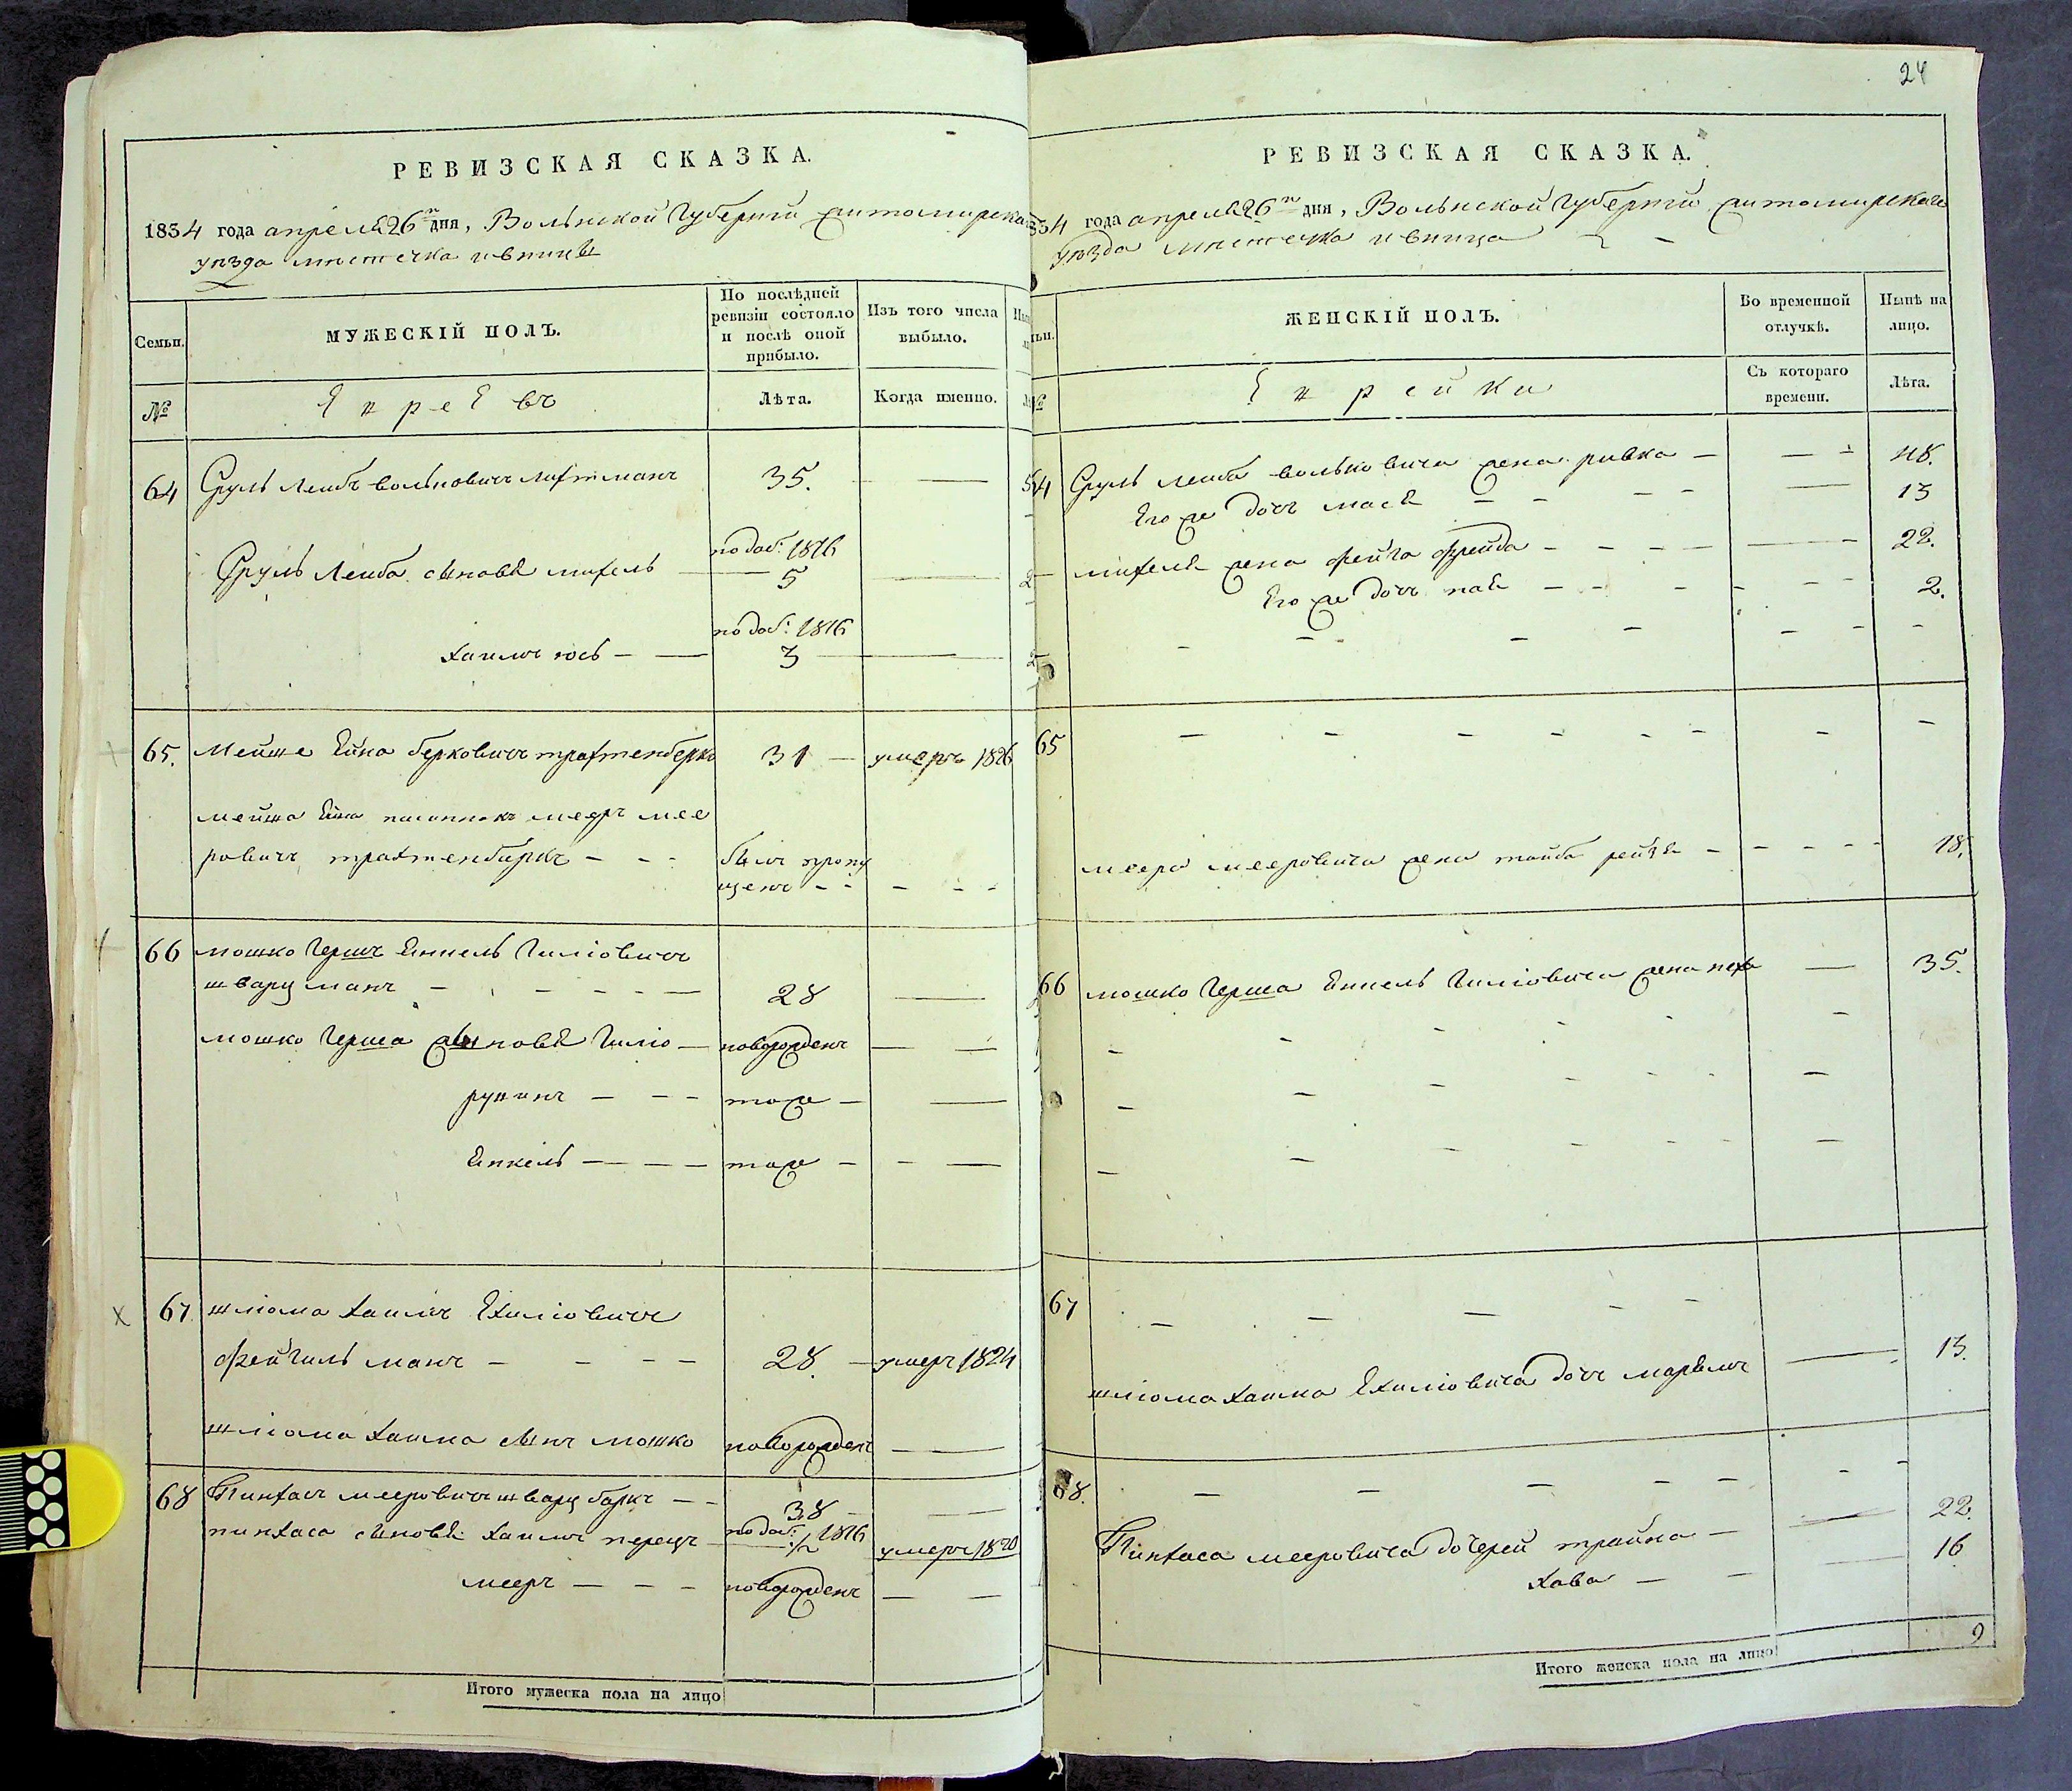 РЕВИЗСКАЯ СКАЗКА.
1834 года апреля 26го дня, Волынской Губернии Житомирска
уѣзда мѣстечка Ивницы
Семьи.
МУЖЕСКІЙ ПОЛЪ.
По послѣдней ревизіи состояло и послѣ оной прибыло.
Изъ того числа выбыло.
№
Евреевъ
Лѣта.
Когда именно.
64 Сруль Лейбъ вольковичъ лихтманъ 35.
по доб: 1816
Сруль Лейба сыновья михель 5
по доб: 1816
хаимъ юсь 3
65. Мейше берковичъ трахтенберкъ 31 умеръ 1826
мейша мееръ мее
ровичъ трахтенбаркъ былъ пропу
щенъ
66 мошко Гершъ Енкель Гиліовичъ
шварцманъ 28
мошко Герша сыновья Гиліо новорожденъ
рувинъ тоже
Енкель тоже
67 шліома хаимъ Ехиліовичъ
фейгильманъ 28. умеръ 1824
шліома хаима сынъ мошко новорожденъ
68 Пинхасъ мееровичъ шварцбаркъ 38
пинхаса сыновья хаимъ перецъ по доб: 1816 1/2 умеръ 1820
мееръ новорожденъ
Итого мужеска пола на лицо
24
РЕВИЗСКАЯ СКАЗКА.
34 года апреля 26го дня, Волынской Губернии Житомирскаго
уѣзда мѣстечка ивница
ЖЕНСКІЙ ПОЛЪ.
Во временной отлучкѣ.
Нынѣ на лицо.
№
Еврейки
Съ котораго времени.
Лѣта.
64 Сруль лейба вольковича жена ривка 48.
Его же дочь мася 13
михеля жена фейга фрейда 22.
Его же дочь 2.
65
меера мееровича жена тойба рейзя 18.
66 мошко Герша Енкель Гиліовича жена неха 35.
67
шліома хаима Ехиліовича дочь марьямъ 13.
68.
Пинхаса мееровича дочерей трайна 22.
хава 16
Итого женска пола на лицо 9